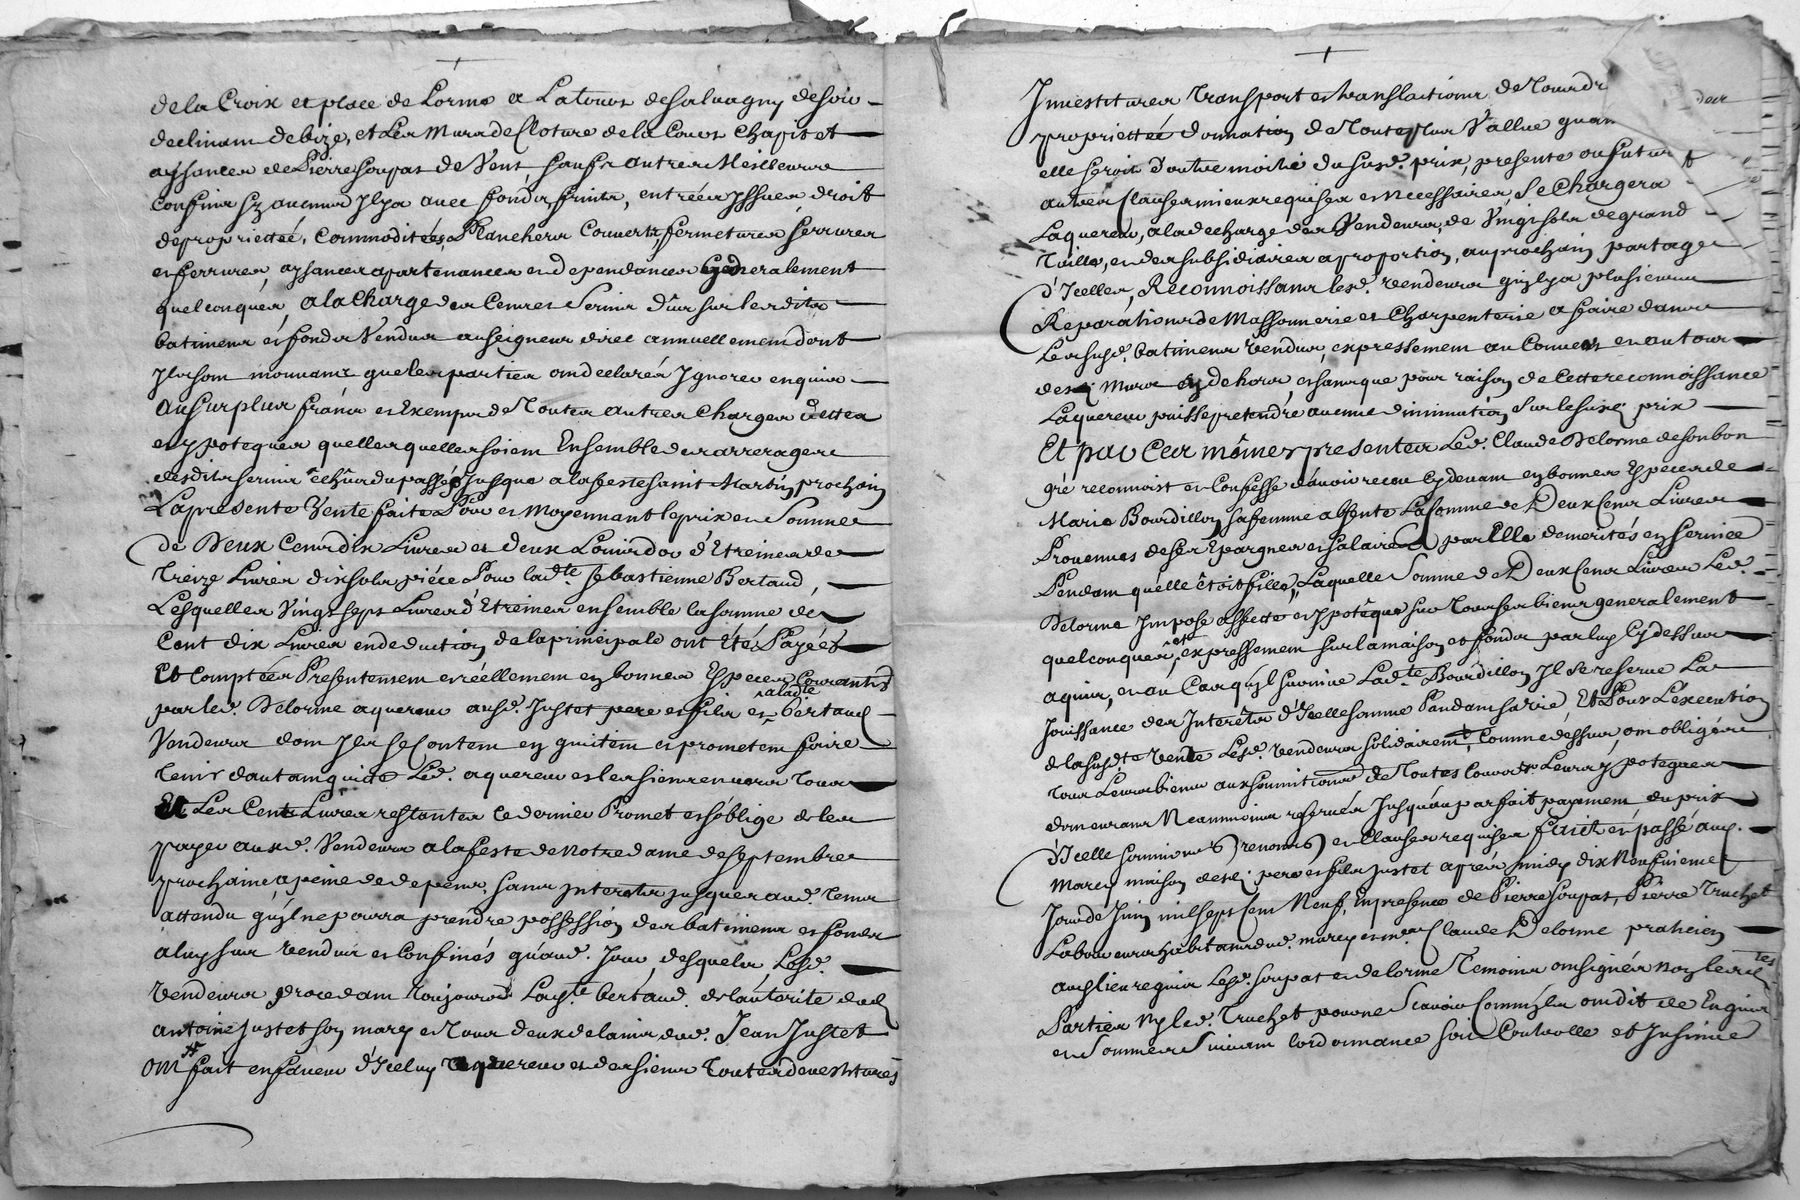 de la Croix et place de Lorme a Latour de Salvagny de soir
declinam de bize, et Les Murs de Cloture de la Cour Chapit et
aysances de Pierre Soupat de Vent, sauf autres Meilleurs
Confins sy aucuns Il y a avec fonds, fruits, entrées Issues droit
de proprietée, Commoditées, Planchers Couverts, fermetures serrures
et ferrures, aysances apartenances et dependances Generalement
quelconques, a la Charge des Cences Servis dûs sur lesdits
batimens et fonds Vendus au seigneur direc annuellement dont
Ils som mouvans que les parties om declarés Ignorer enquis
au surplus francs et Exemps de Toutes autres Charges dettes
et ypoteques quelles quelles soiem Ensemble des arrerages
desdits servis êchûs du passé Jusque a la feste saint Martin prochain
La presente Vente faite Pour et Moyennant le prix et Somme
de Deux Cent dix Livres et deux Louis dor d'Etreines de
Treize Livres dix sols piéce Pour ladte Sebastienne Bertaud,
Lesquelles Vingt sept Livres d'Etreines ensemble la somme de
Cent dix Livres en deduction de la principale ont Eté Payées
Et Comptées Presentement et réellement en bonnes Especes Courantes
par led. Delorme aquereur ausd. Justet pere et fils et a ladte Bertaud
Vendeurs dom Ils se Contem en quitem et prometem faire
Tenir dautam quite Led. aquereur et les siens envers Tous
Et Les Cent Livres restantes ce dernier Promet et s'oblige de les
payer auxd. Vendeurs a la feste de Notre dame de septembre
prochaine a peine de depens, sans Interets jusques aud. Tems
attendu qu'il ne pourra prendre possession des batimens et fonds
a luy sus vendus et Confinés qu'aud. Jour, desquels Lesd.
Vendeurs procedam Toujours Lasdte bertaud de l'autorité dud.
antoine Justet son mary et Tous deux de lavis dud. Jean Justet
Om fait en faveur d'Iceluy aquereur et des siens Toutes devestitures
Investitures Transport et translations de Tous dr
proprietée donnation de Toute plus Vallue quan
elle seroit d'outre moitié du susd. prix, presente ou future
autres Clauses mieux requises et Necessaires, Se Chargera
Laquereur, a la decharge des Vendeurs, de Vingt sols de grand
Taille, et des subsidiaires a proportion, au prochain partage
d'Icelles, Reconnoissans lesd. vendeurs qu'il y a plusieurs
Reparations de Massonnerie et Charpenterie a faire dans
Les susd. batimens vendus, expressement au Couvert et au tour
des murs en dehors, et sans que pour raison de Cette reconnoissance
Laquereur puisse pretendre aucune diminution sur le sus. prix
Et par Ces mêmes presentes Led. Claude Delorme de son bon
gré reconnoist et Confesse d'avoir receu Cy devant en bonnes Especes de
Marie Bourdillon sa femme absente La somme de Deux Cens Livres
Provenues de ses Epargnes et salaires par Elle demerités en service
Pendam qu'elle êtoit fille, Laquelle Somme de Deux Cens Livres Led.
Delorme Impose assette et ypotéque sur Tous ses biens generalement
quelconques, et expressement sur la maison et fonds par luy Cy dessus
aquis, et au Cas qu'il survive Ladte Bourdillon Il se reserve La
Jouissance des Interets d'Icelle somme Pendam sa vie, Et Pour L'execution
de la susdte Vente Lesd. vendeurs solidairemt, Comme dessus, om obligés
Tous Leurs biens aux soumitions de Toutes Cours Leurs ypoteques
demeurans Neammoins reservés Jusqu'au parfait payement du prix
d'Icelle soumions renons et Clauses requises fait et passé aud.
Marcy maison desd. pere et fils Justet aprés midy dix Neufvieme
Jour de Juin mil sept Cens Neuf, En presence de Pierre Soupat, Pierre Truchet
Laboureurs habitans dud. marcy et me Claude Delorme praticien
aud. lieu requis Lesd. soupat et delorme Temoins om signés Non lesdtes
Parties Ny led. Truchet pour ne Scavoir Comme ils om dit de Enquis
et Sommés Suivam lordonnance soit Controlle et Insinué